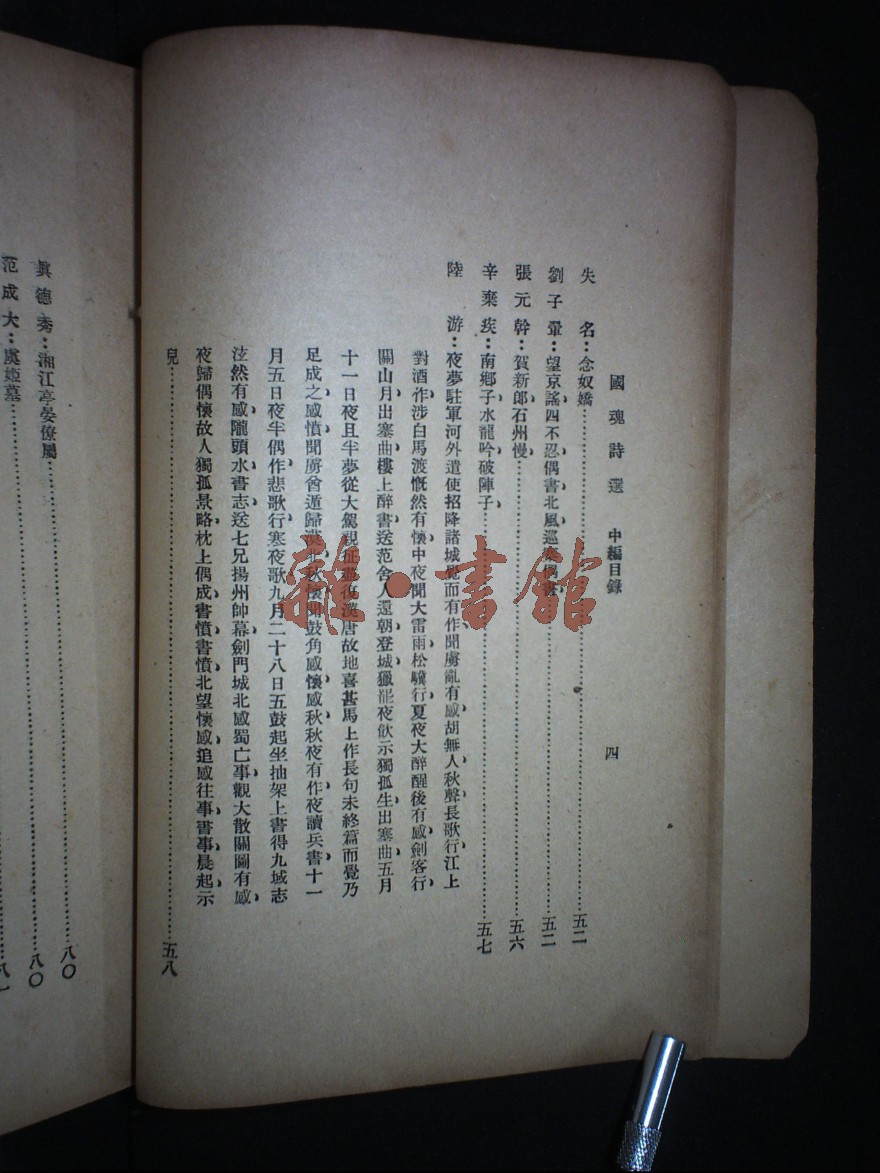 國魂詩選 中編目錄 四
失名：念奴嬌……五二
劉子翬：望京謠、四不忍、偶書、北風、偶書……五二
張元幹：賀新郎、石州慢……五六
辛棄疾：南鄉子、水龍吟、破陣子……五七
陸游：夜夢駐軍河外遣使招降諸城覺而有作、聞虜亂有感、胡無人、秋聲、長歌行、江上
對酒作、涉白馬渡慨然有懷、中夜聞大雷雨、松驥行、夏夜大醉醒後有感、劍客行、
關山月、出塞曲、樓上醉書、送范舍人還朝、登城、獵罷夜飲示獨孤生、出塞曲、五月
十一日夜且半夢從大駕親征盡復漢唐故地喜甚馬上作長句未終篇而覺乃
足成之、感憤、聞虜酋遁歸漠北、秋懷、聞鼓角感懷、感秋、秋夜有作、夜讀兵書、十一
月五日夜半偶作、悲歌行、寒夜歌、九月二十八日五鼓起坐抽架上書得九域志
泫然有感、隴頭水、書志、送七兄揚州帥幕、劍門城北感蜀亡事、觀大散關圖有感、
夜歸偶懷故人獨孤景略、枕上偶成、書憤、書憤、北望、懷感、追感往事、書事、晨起示
兒……五八
……八〇
眞德秀：湘江亭晏僚屬……八〇
范成大：虞姬墓……八
雜·書館